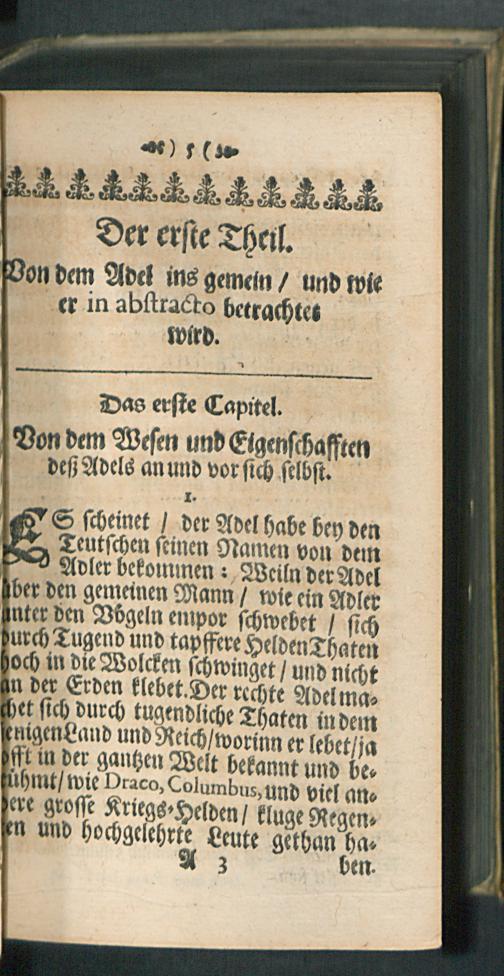 ) 5 (
Der erste Theil.
Von dem Adel ins gemein / und wie
er in abstracto betrachtet
wird.
Das erste Capitel.
Von dem Wesen und Eigenschafften
deß Adels an und vor sich selbst.
1.
ES scheinet / der Adel habe bey den
Teutschen seinen Namen von dem
Adler bekommen: Weiln der Adel
über den gemeinen Mann / wie ein Adler
unter den Vögeln empor schwebet / sich
durch Tugend und tapffere Helden Thaten
hoch in die Wolcken schwinget / und nicht
an der Erden klebet. Der rechte Adel ma-
chet sich durch tugendliche Thaten in dem
jenigen Land und Reich/worinn er lebet/ja
offt in der gantzen Welt bekannt und be-
rühmt/wie Draco, Columbus, und viel an-
dere grosse Kriegs-Helden / kluge Regen-
ten und hochgelehrte Leute gethan ha-
A 3 ben.